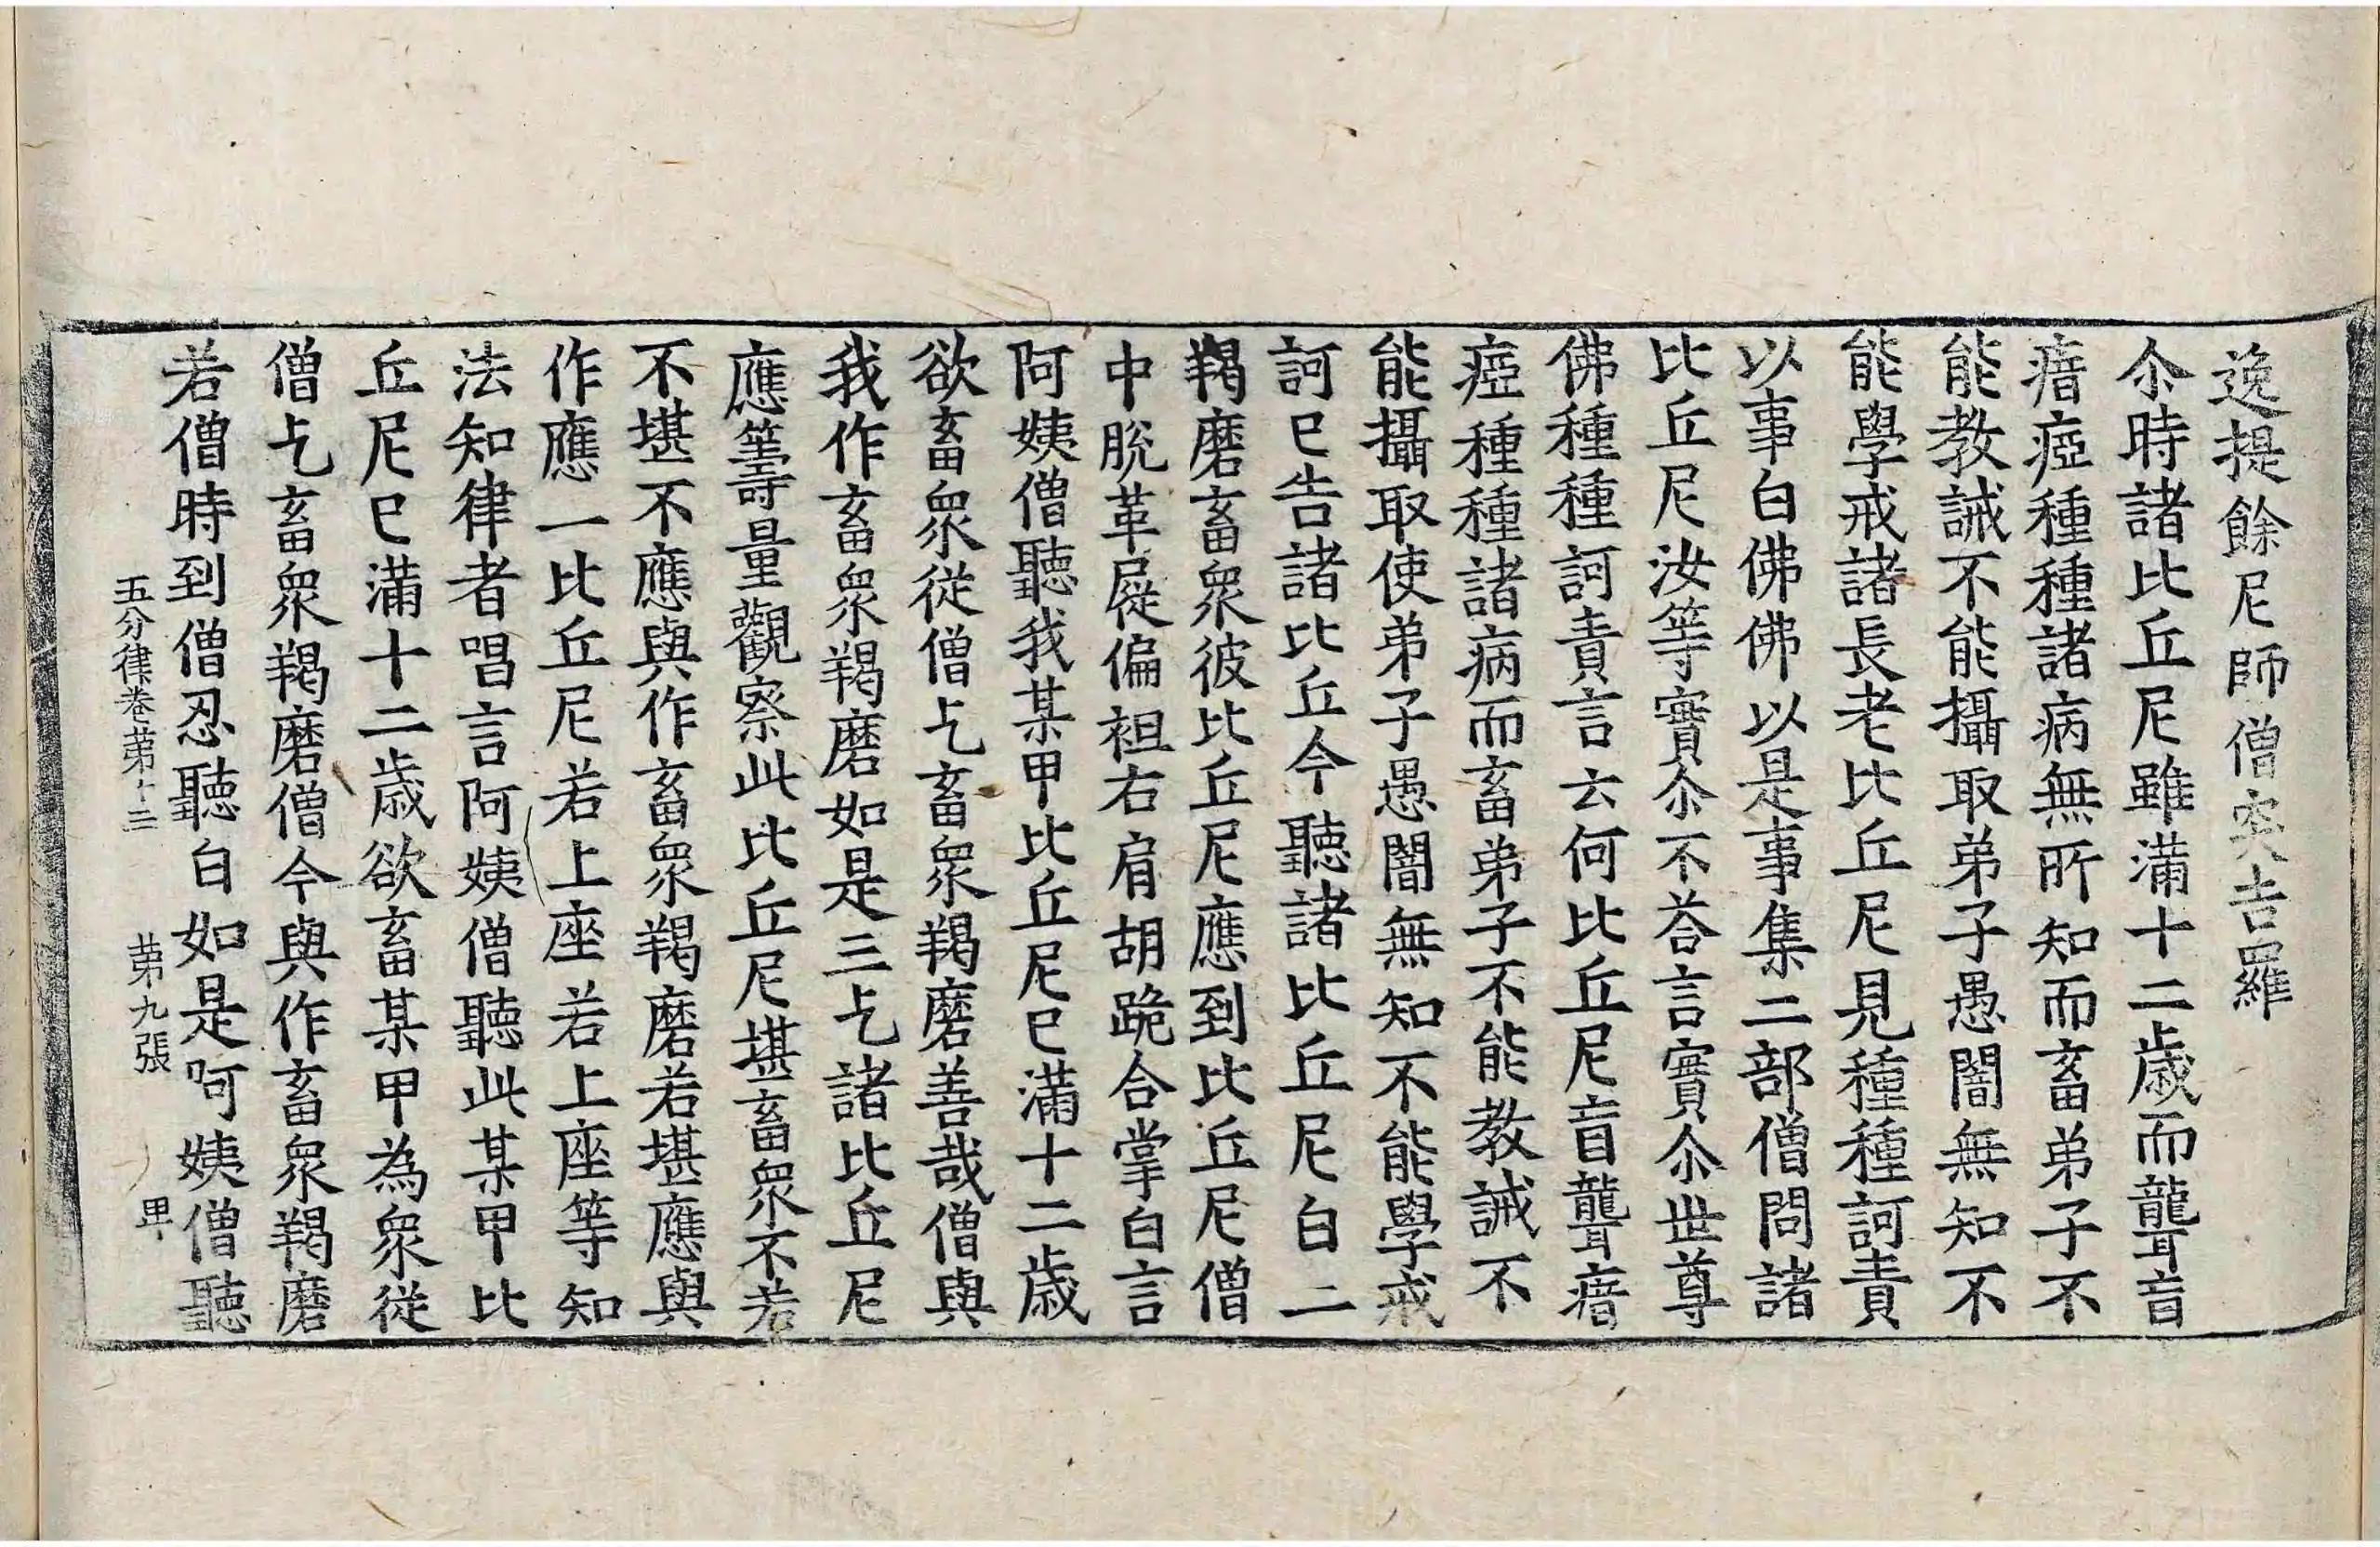 逸提餘尼師僧突吉羅
尒時諸比丘尼雖滿十二歳而聾盲
瘖瘂種種諸病無所知而畜弟子不
能教誡不能攝取弟子愚闇無知不
能學戒諸長老比丘尼見種種訶責
以事白佛佛以是事集二部僧問諸
比丘尼汝等實尒不荅言實尒世尊
佛種種訶責言云何比丘尼盲聾瘖
瘂種種諸病而畜弟子不能教誡不
能攝取使弟子愚闇無知不能學戒
訶巳告諸比丘今聽諸比丘尼白二
羯磨畜衆彼比丘尼應到比丘尼僧
中脫革屣偏袒右肩胡跪合掌白言
阿姨僧聽我某甲比丘尼巳滿十二歳
欲畜衆從僧乞畜衆羯磨善哉僧與
我作畜衆羯磨如是三乞諸比丘尼
應籌量觀察此比丘尼堪畜衆不若
不堪不應與作畜衆羯磨若堪應與
作應一比丘尼若上座若上座等知
法知律者唱言阿姨僧聽此某甲比
丘尼巳滿十二歳欲畜某甲為衆從
僧乞畜衆羯磨僧今與作畜衆羯磨
若僧時到僧忍聽白如是阿姨僧聽
五分律卷第十三　第九張　甲